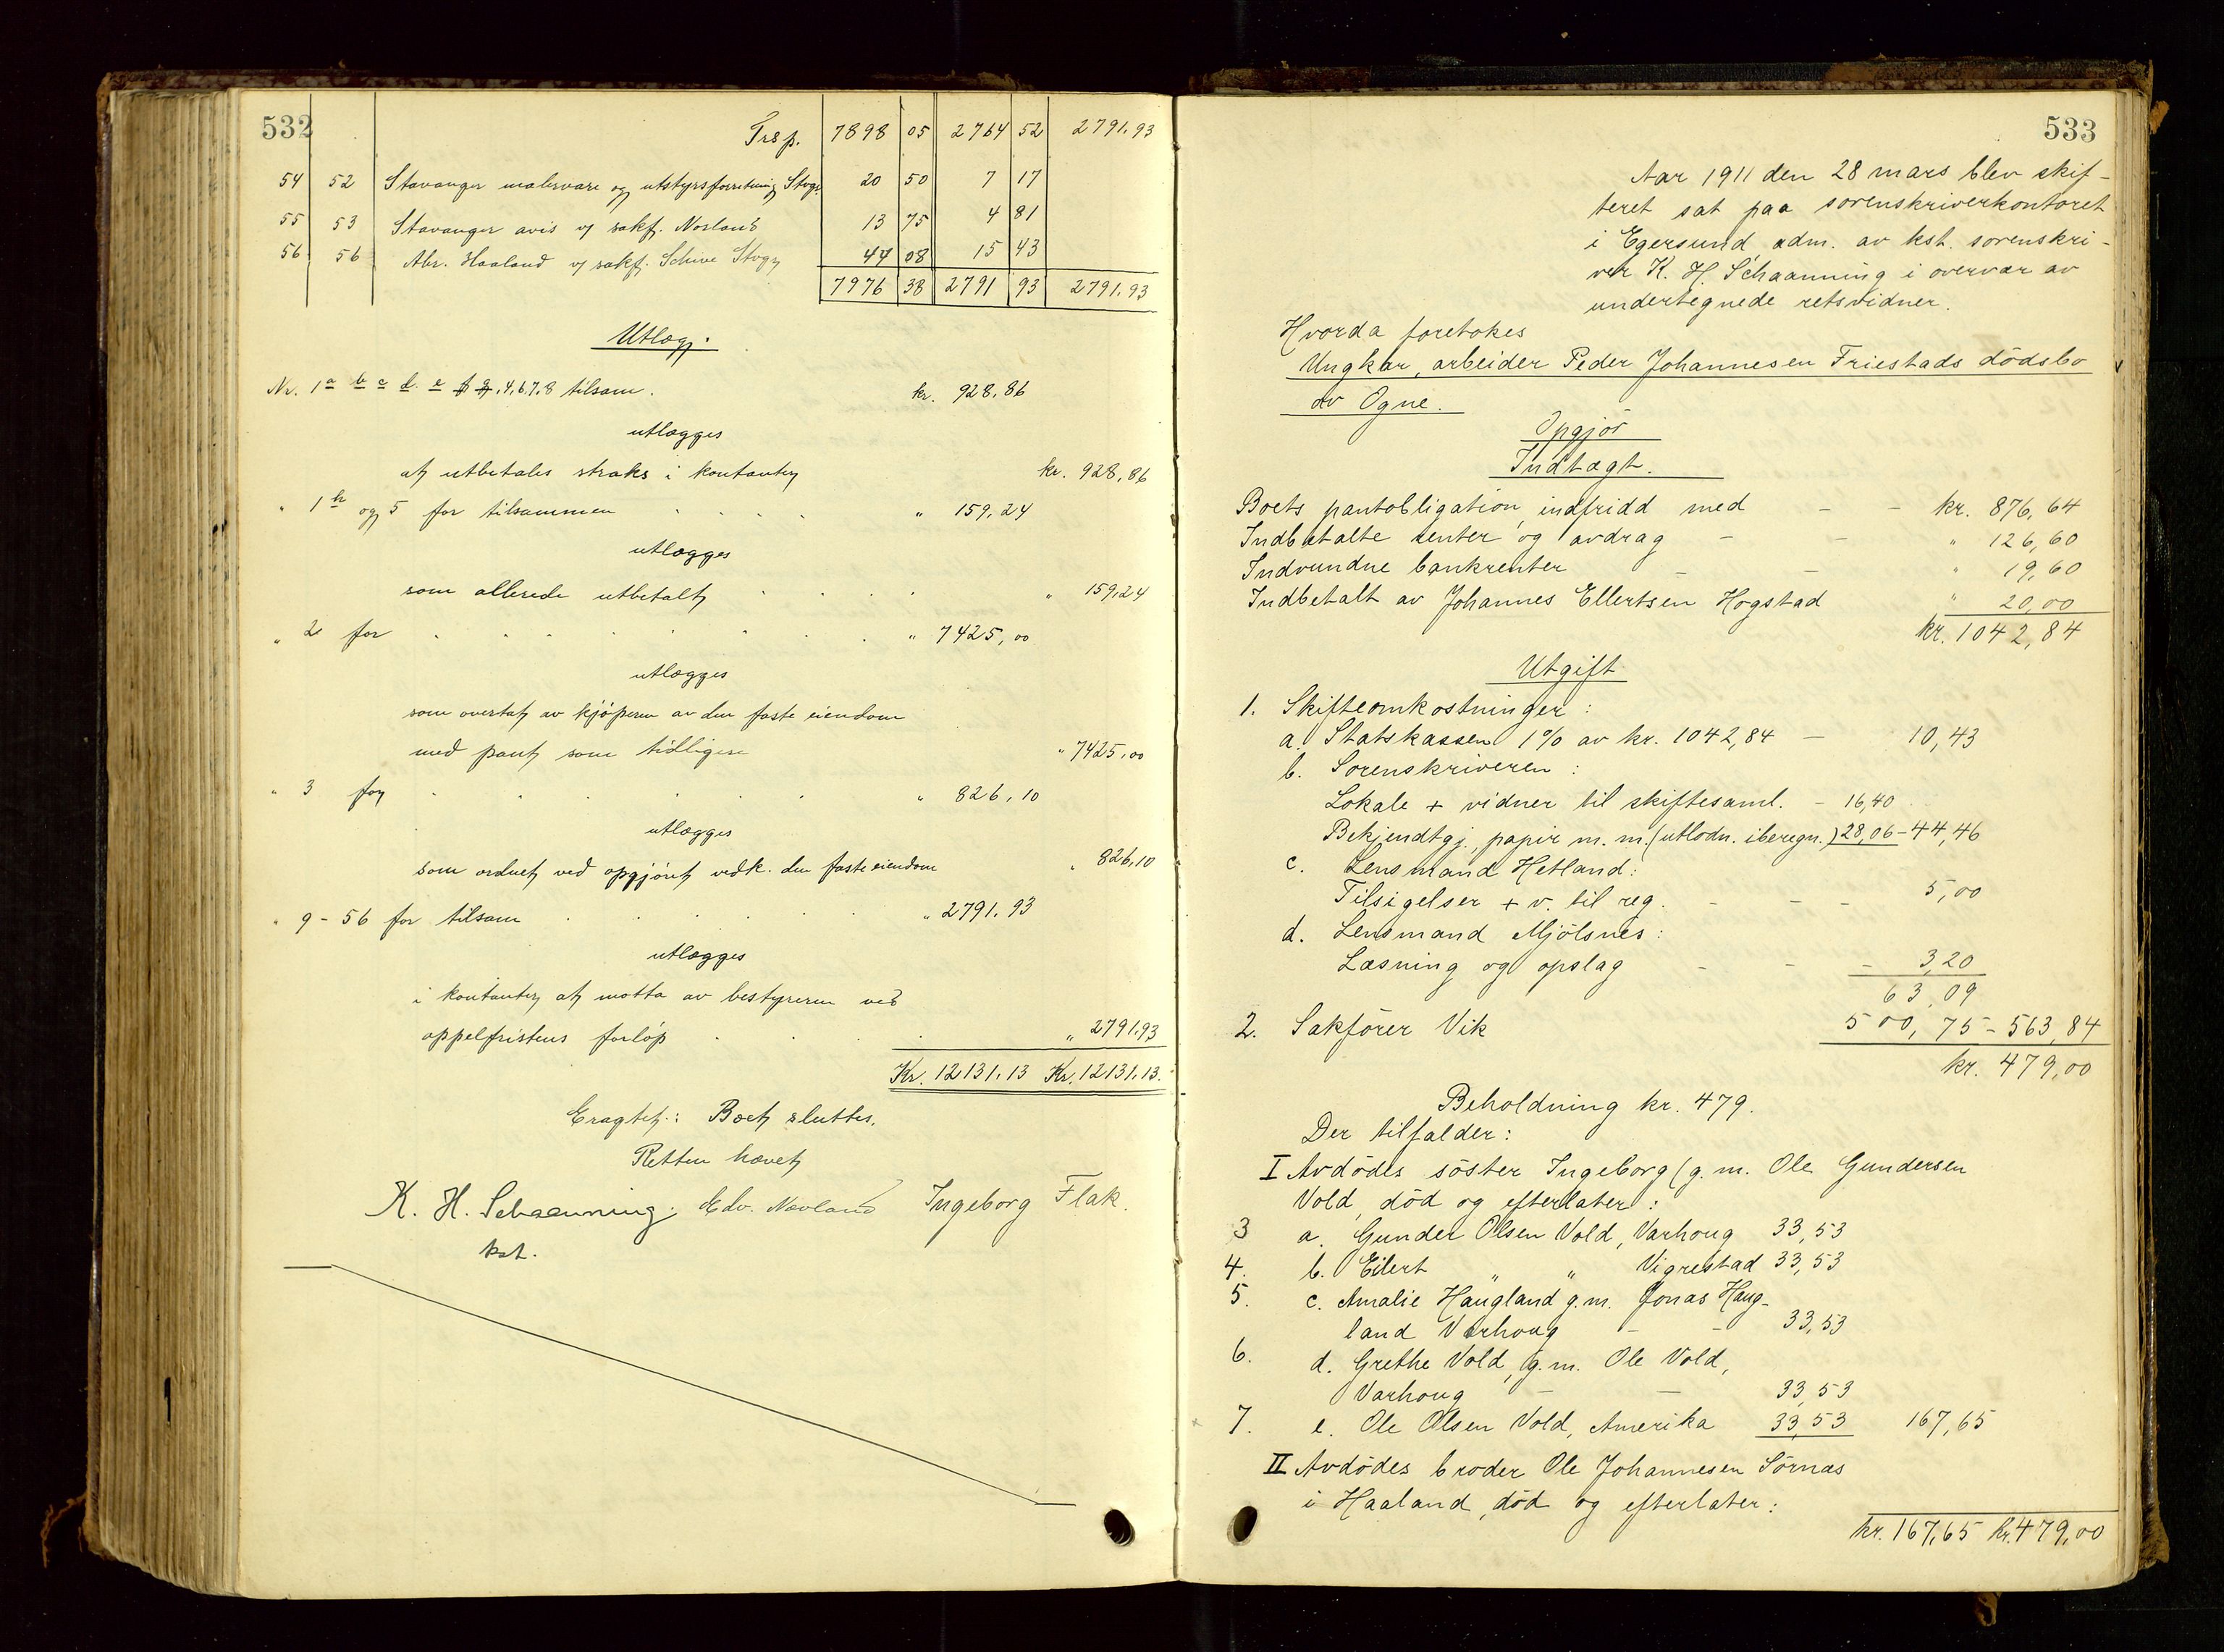 532
Trsp. 7898 05 2764 52 2791.93
54 52 Stavanger malervare og utstyrsforretning Stvgr. 20 50 7 17
55 53 Stavanger avis v/ sakf. Norland 13 75 4 81
56 56 Abr. Haaland v/ sakf. Schive Stvgr 44 08 15 43
7976 38 2791 93 2791.93
Utlæg.
Nr. 1 a b c d e f g, 4, 6, 7, 8 tilsam. kr. 928,86
utlægges
at utbetales straks i kontanter kr. 928,86
" 1 h og 5 for tilsammen " 159,24
utlægges
som allerede utbetalt " 159,24
" 2 for " 7425,00
utlægges
som overtat av kjøperen av den faste eiendom
med pant som tidligere " 7425,00
" 3 for " 826,10
utlægges
som ordnet ved opgjøret vedk. den faste eiendom " 826,10
" 9 - 56 for tilsam " 2791.93
utlægges
i kontanter at motta av bestyreren ved
appelfristens forløp " 2791.93
Kr. 12131.13 Kr. 12131.13.
Eragtet: Boet sluttes.
Retten hævet
K. H. Schaanning. Edv. Nævland Ingeborg Flak.
kst.
533
Aar 1911 den 28 mars blev skif-
teret sat paa sorenskriverkontoret
i Egersund adm. av kst. sorenskri-
ver K. H. Schaanning i overvær av
undertegnede retsvidner.
Hvorda foretokes
Ungkar, arbeider Peder Johannesen Friestads dödsbo
av Ogne.
Opgjör
Indtægt.
Boets pantobligation, indfridd med - - kr. 876,64
Indbetalte renter og avdrag - - " 126,60
Indvundne bankrenter - - " 19,60
Indbetalt av Johannes Ellertsen Hogstad " 20,00
kr. 1042,84
Utgift
1. Skifteomkostninger:
a. Statskassen 1% av kr. 1042,84 - 10,43
b. Sorenskriveren:
Lokale + vidner til skiftesaml. - 16,40
Bekjendtgj., papir m. m. (utlodn. iberegn.) 28,06 - 44,46
c. Lensmand Hetland:
Tilsigelser + v. til reg. - - - 5,00
d. Lensmand Mjölsnes:
Læsning og opslag - - - 3,20
63,09
2. Sakförer Vik 500,75 - 563,84
kr. 479,00
Beholdning kr. 479.
Der tilfalder:
I Avdödes söster Ingeborg (g. m. Ole Gundersen
Vold, död og efterlater:
3 a. Gunder Olsen Vold, Varhoug 33,53
4. b. Eilert " " Vigrestad 33,53
5. c. Amalie Haugland g.m. Jonas Haug-
land Varhoug - - 33,53
6. d. Grethe Vold, g. m. Ole Vold,
Varhoug - - 33,53
7. e. Ole Olsen Vold, Amerika 33,53 167,65
II Avdödes broder Ole Johannesen Sörnæs
i Haaland, död og efterlater:
kr. 167,65 kr. 479,00